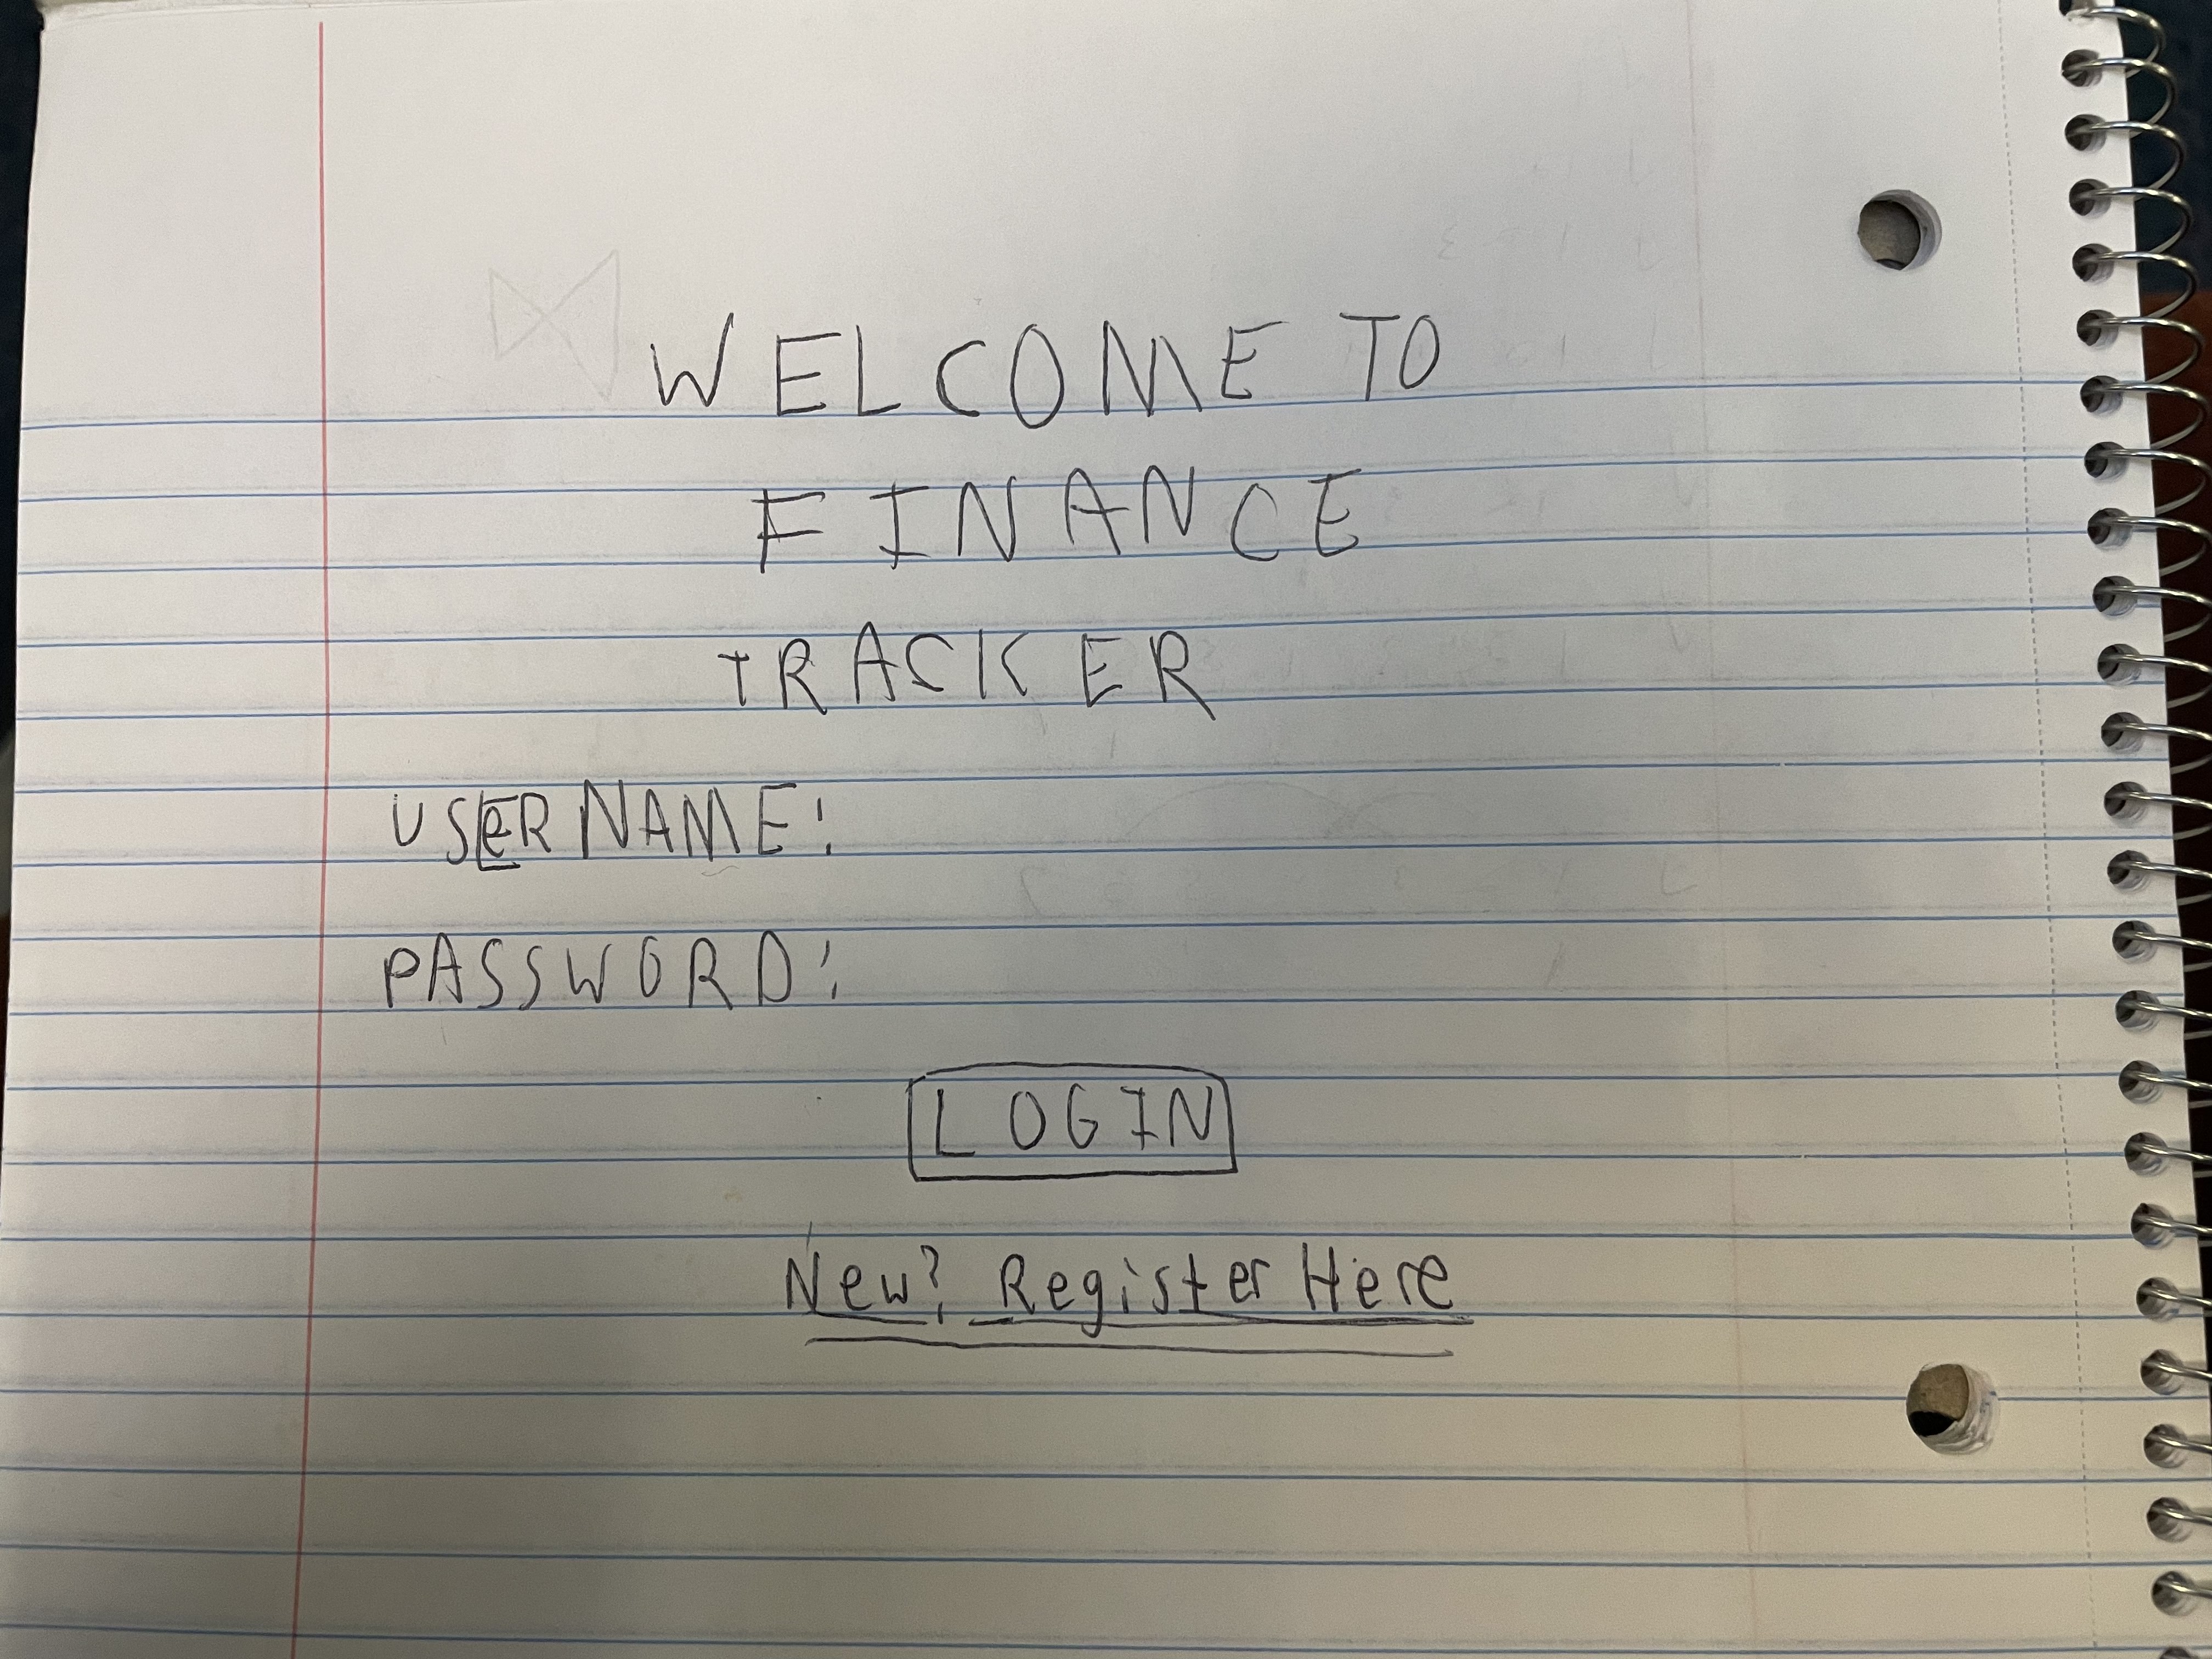 WELCOME TO
FINANCE
TRACKER
USeRNAME:
PASSWORD:
LOGIN
New? Register Here